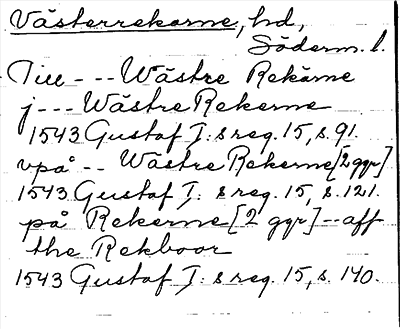 Västerrekarne, hd,
Söderm. l.
Till - - - Wästre Rekarne
j - - - Wästre Rekerne
1543 Gustaf I: s reg. 15, s. 91.
vpå - - Wästre Rekerne [2 ggr]
1543 Gustaf I: s reg. 15, s. 121.
på Rekerne [2 ggr] -- aff
the Rekboor
1543 Gustaf I: s reg. 15, s. 140.